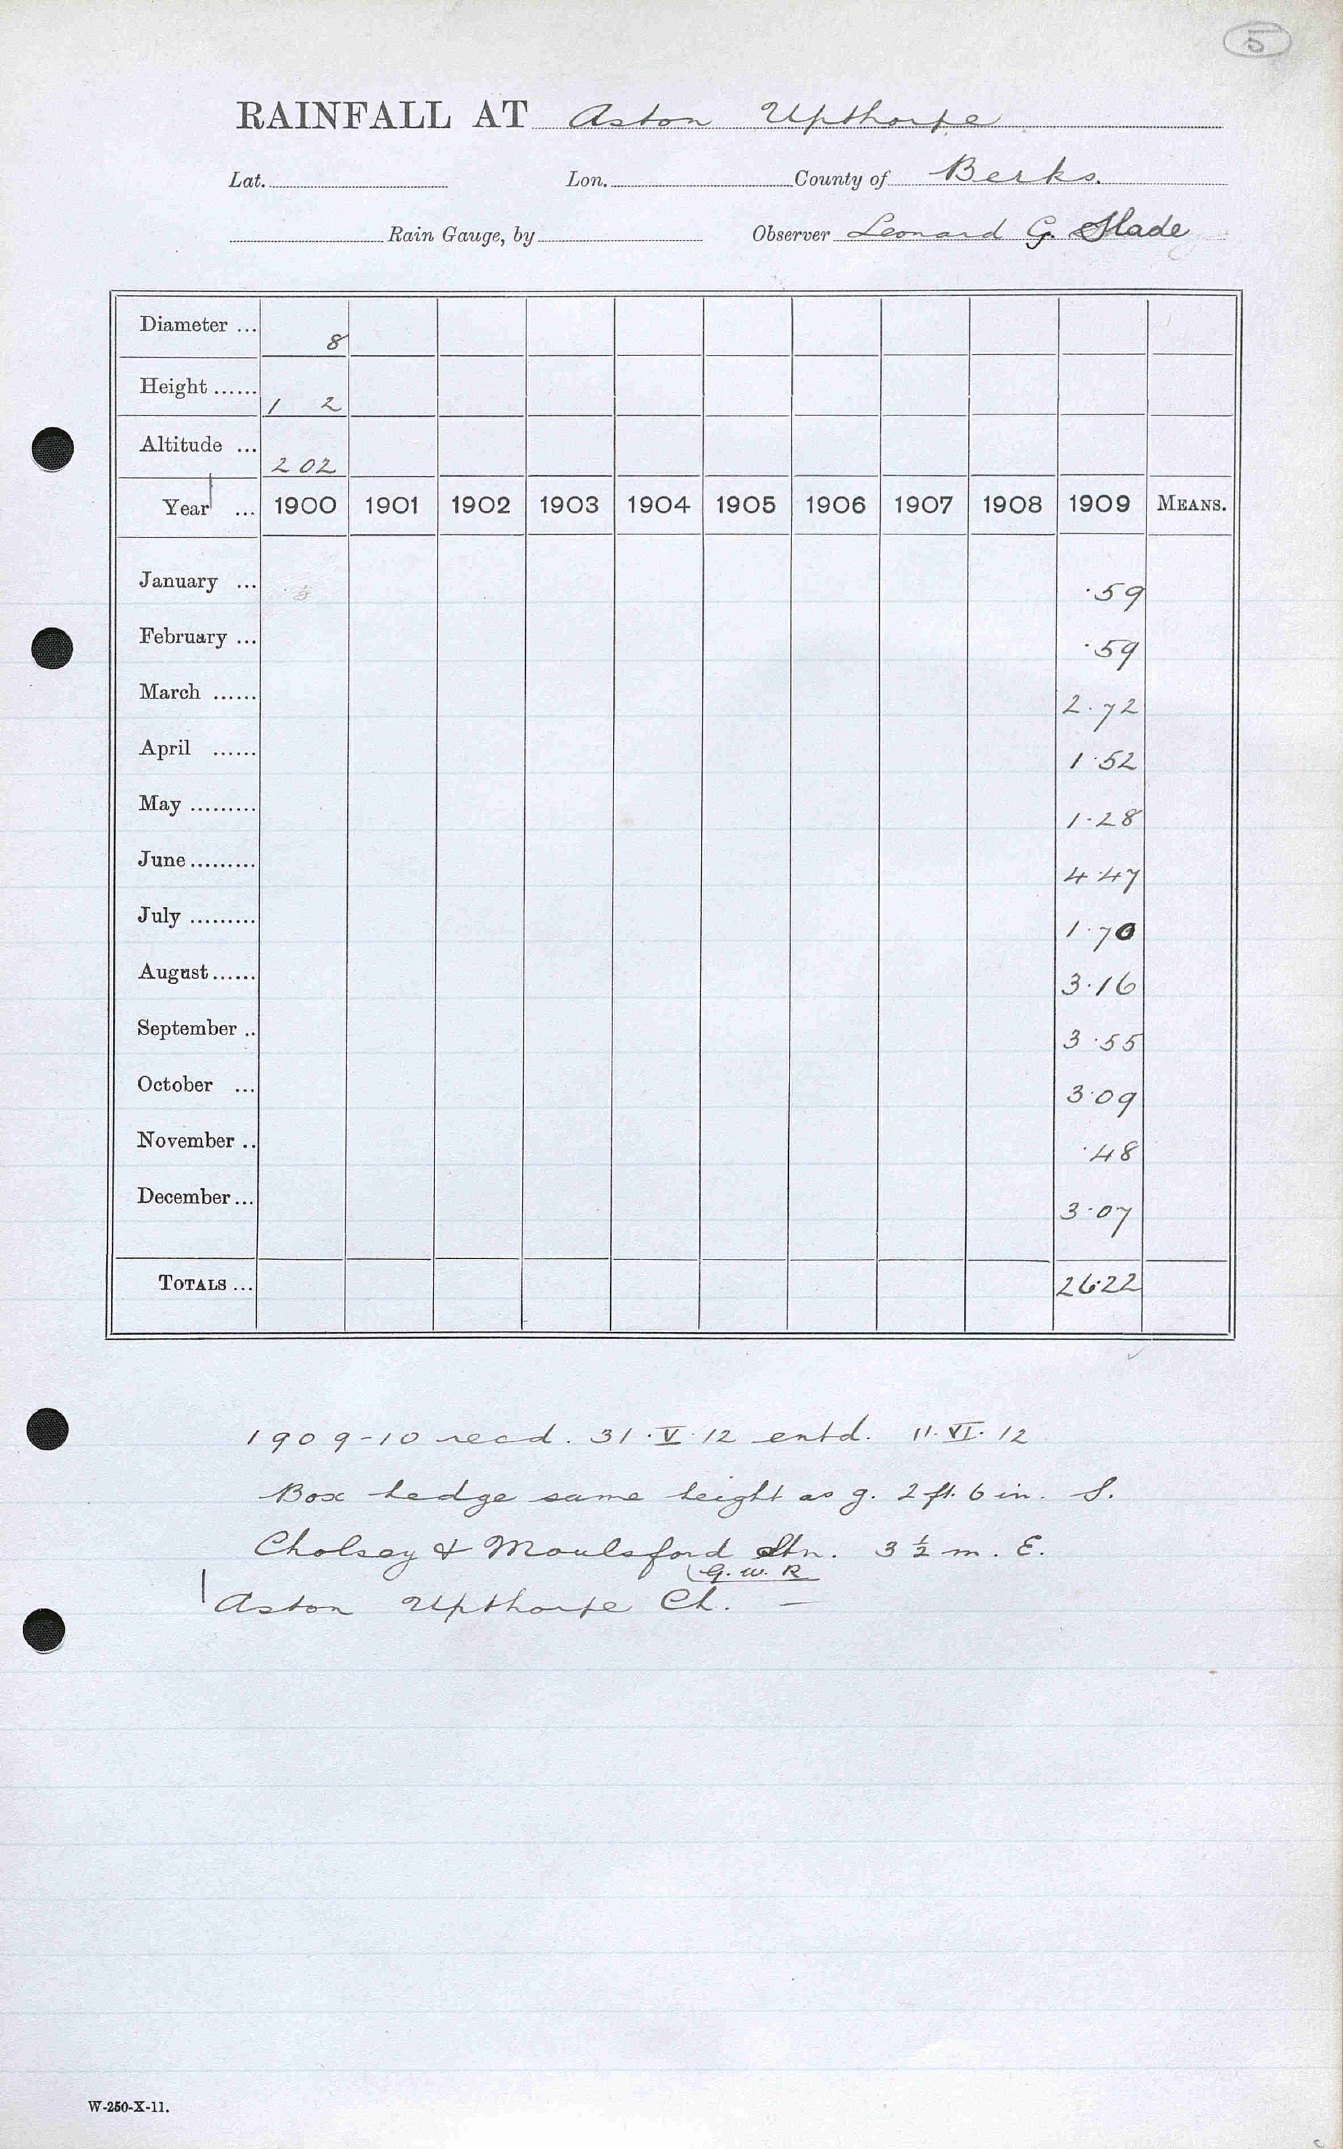 5
RAINFALL AT Aston Upthorpe
Lat. Lon. County of Berks.
Rain Gauge, by Observer Leonard G. Slade
Diameter ... 8
Height ...... 1 2
Altitude ... 202
Year ... 1900 1901 1902 1903 1904 1905 1906 1907 1908 1909 MEANS.
January ... ·59
February ... ·59
March ...... 2·72
April ...... 1·52
May ......... 1·28
June ......... 4·47
July ......... 1·70
August ...... 3·16
September .. 3·55
October ... 3·09
November .. ·48
December ... 3·07
TOTALS ... 26·22
1909-10 recd. 31.V.12 entd. 11.VI.12
Box hedge same height as g. 2 ft. 6 in. S.
Cholsey & Moulsford Stn. 3 ½ m. E.
(G.W.R
Aston Upthorpe Ch. —
W-250-X-11.